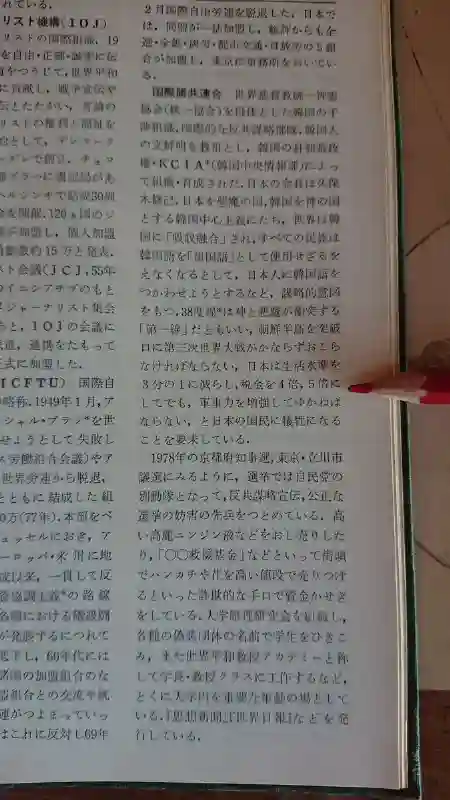 リスト機構(IOJ)
ーリストの国際組織．19
を自由・正確・誠実に伝
に貢献し，戦争宣伝や
リストの権利と福祉を
ヘルシンキで結成30周
を開催．120ヵ国のジ
が加盟し，個人加盟
員数約15万と発表．
スト会議(JCJ，55年
のイニシアチブのもと
ジャーナリスト集会
IOJの会議に
連携をたもって
正式に加盟した．
ICFTU) 国際自
略称．1949年1月，ア
ーシャル・プラン*を世
せようとして失敗し
ス労働組合会議)やア
世界労連から脱退，
とともに結成した組
0万(77年)．本部をベ
ュッセルにおき，ア
ーロッパ・米州に地
以来，一貫して反
における階級闘
が発展するにつれて
低下し，60年代には
諸国の加盟組合のな
組合との交流や統
運がつよまっていっ
はこれに反対し69年
2月国際自由労連を脱退した．日本で
は，同盟が一括加盟し，総評からも全
合が加盟し，東京に事務所をおいてい
る．
国際勝共連合 世界基督教統一神霊
協会(統一協会)を母体とした韓国の干
渉組織，国際的な反共謀略部隊．韓国人
の文鮮明を教祖とし，韓国の朴軍事政
権・KCIA*(韓国中央情報部)によっ
て組織・育成された．日本の会長は久保
木修己．日本を悪魔の国，韓国を神の国
とする韓国中心主義にたち，世界は韓
国に「吸収融合」され，すべての民族は
韓国語を「祖国語」として使用せざるを
えなくなるとして，日本人に韓国語を
つかわせようとするなど，謀略的意図
をもつ．38度線*は神と悪魔が衝突する
「第一線」だともいい，朝鮮半島を突破
口に第三次世界大戦がかならずおこら
なければならない，日本は生活水準を
3分の1に減らし，税金を4倍，5倍に
してでも，軍事力を増強してゆかねば
ならない，と日本の国民に犠牲になる
ことを要求している．
1978年の京都府知事選，東京・立川市
議選にみるように，選挙では自民党の
別動隊となって，反共謀略宣伝，公正な
選挙の妨害の先兵をつとめている．高
い高麗ニンジン液などをおし売りした
り，「〇〇救援基金」などといって街頭
でハンカチや花を高い値段で売りつけ
るといった詐欺的な手口で資金かせぎ
をしている．大学原理研究会を組織し，
各種の偽装団体の名前で学生をひきこ
み，また世界平和教授アカデミーと称
して学長・教授クラスに工作するなど，
とくに大学内を重要な策動の場として
いる．『思想新聞』『世界日報』などを発
行している．